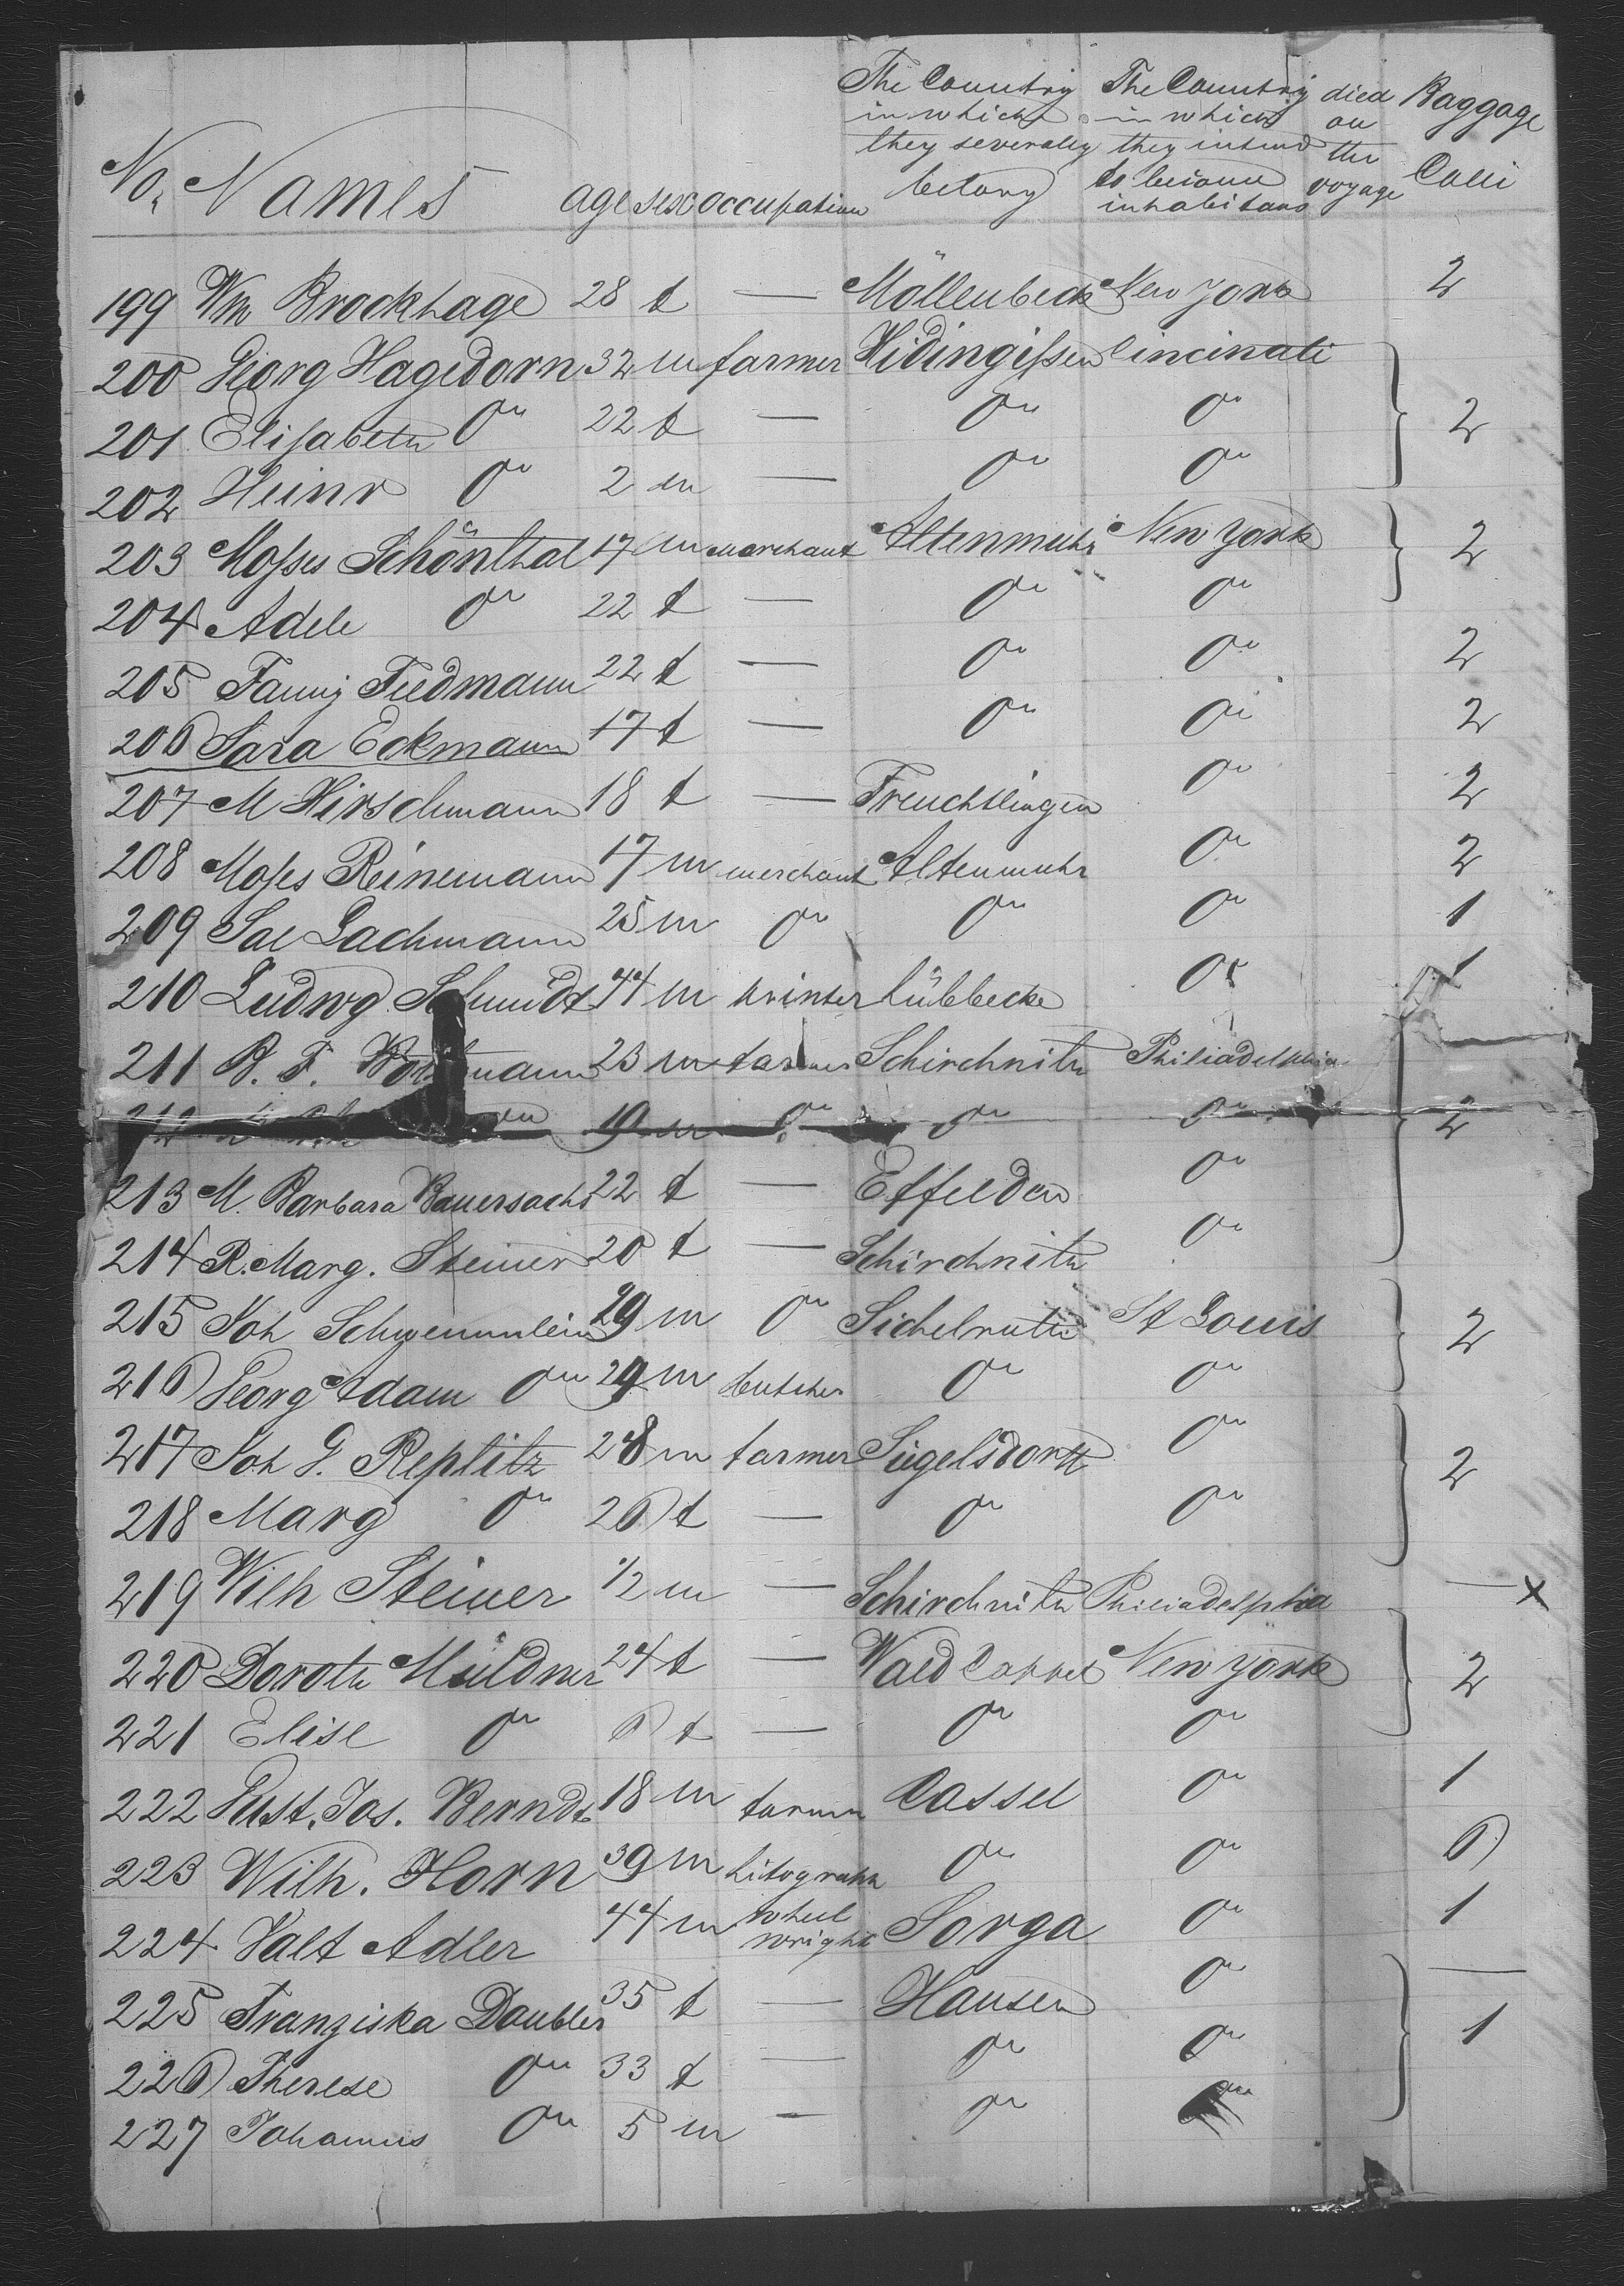 No. Names age sex occupation The Country in which they severally belong The Country in which they intend to become inhabitans died on the voyage Baggage Colli
199 Wm Brockhage 28 f — Möllenbeck New York 2
200 Georg Hagedorn 32 m farmer Hidingißen Cincinati
201 Elisabeth do 22 f — do do 2
202 Heinr do 2 m — do do
203 Moßes Schönthal 17 m marchant Altenmuhr New York 2
204 Adele do 22 f — do do
205 Fanny Fiedmann 22 f — do do 2
206 Sara Eckmann 17 f — do do 2
207 M Hirschmann 18 f — Treuchtlingen do 2
208 Moses Reinemann 17 m merchant Altenmuhr do 2
209 Sal Lachmann 25 m do do do 1
210 Ludwg Schmidt 44 m printer Lübbecke do 1
211 B. F. 23 m farmer Schirchnitz Philiadelphia
212 do 19 m do do do 2
213 M. Barbara Bauersachs 22 f — Effelder do
214 R. Marg. Steiner 20 f — Schirchnitz do
215 Joh Schwemmlein 29 m do Sichelruth St Louis 2
216 Georg Adam do 29 m butcher do do
217 Joh G. Replitz 28 m farmer Sügelsdorff do 2
218 Marg do 26 f — do do
219 Wilh Steiner 1/2 m — Schirchnitz Philiadelphia — x
220 Doroth Müldner 24 f — Wald Cappel New York 2
221 Elise do 6 f — do do
222 Gust. Jos. Berndt 18 m farmer Cassel do 1
223 Wilh. Horn 39 m Litograph do do 6
224 Valt Adler 44 m wheel wright Sorga do 1
225 Franziska Doubler 35 f — Hausen do —
226 Therese do 33 f — do do 1
227 Johannes do 5 m — do do